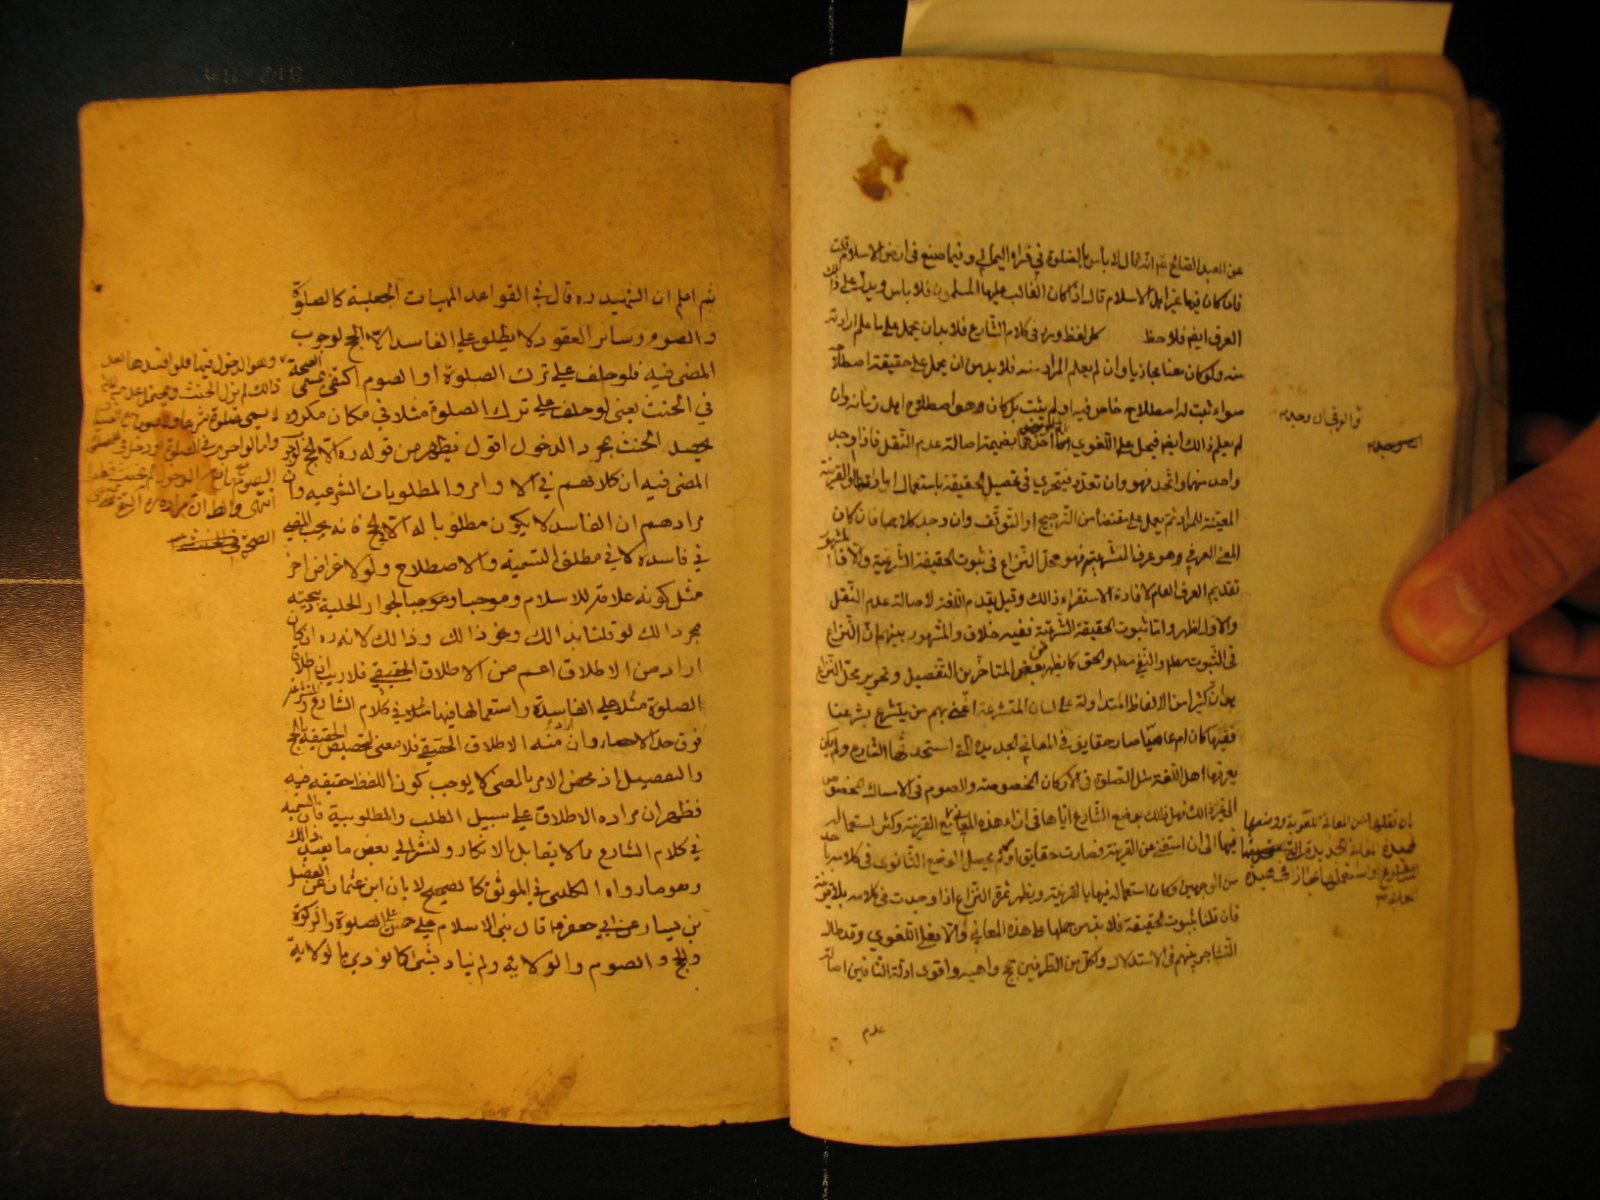 عن العبد الصالح عم انه قال لا بأس بالصلوة في فراء اليماني وفيما صنع في ارض الاسلام قلت
فان كان فيها غير اهل الاسلام قال اذا كان الغالب عليها المسلمون فلا باس ويدل على ذلك
العرف ايضا فلاحظ كل لفظ ورد في كلام الشارع فلا بد ان يحمل على ما علم ارادته
منه ولو كان معنا مجازيا وان لم يعلم المراد منه فلا بد من ان يحمل على حقيقة اصطلاحه
سواء ثبت له اصطلاح خاص فيه او لم يثبت بل كان هو اصطلاح اهل زمانه وان
لم يعلم ذلك ايضا فيحمل على اللغوي بضميمة اصالة عدم النقل فاذا وجد
واحد منها واتحد فهو وان تعدد فيتحرى في تحصيل الحقيقة باستعمال القرينة
المعينة للمراد ثم يعمل على مقتضاه من الترجيح او التوقف وان وجد كلاهما فان كان
المعنى العرفي هو عرف المتشرعة فهو محل النزاع في ثبوت الحقيقة الشرعية والا فالمشهور
تقديم العرف العام لافادة الاستقراء ذلك وقيل يقدم اللغة لاصالة عدم النقل
والاول اظهر واما ثبوت الحقيقة الشرعية ففيه خلاف والمشهور بينهم ان النزاع
في الثبوت مطلقا والنفي مطلقا والحق كما يظهر من بعض المتاخرين التفصيل وتحرير محل النزاع
هو ان كثيرا من الالفاظ المتداولة على لسان المتشرعة اعني بهم من يتشرع بشرعنا
فقيها كان ام عاميا صار حقايق في المعاني الجديدة التي استحدثها الشارع ولم يكن
يعرفها اهل اللغة مثل الصلوة في الاركان المخصوصة والصوم في الامساك المخصوص
الى غير ذلك فهل ذلك بوضع الشارع اياها في ازاء هذه المعاني مع القرينة وكثر استعماله
فيها الى ان استغنى عن القرينة وصارت حقايق او لم يحصل الوضع الثانوي في كلامه باحد
من الوجهين وكان استعماله فيها بالقرينة ويظهر ثمرة النزاع اذا وجدت في كلامه بلا قرينة
فان قلنا بثبوت الحقيقة فلا بد من حملها على هذه المعاني والا فعلى اللغوي وقد طال
التشاجر بينهم في الاستدلال ولكل من الطرفين حجج واهية واقوى ادلة النافين اصالة
عدم
بان نقلها من المعاني اللغوية ووضعها
ثم اعلم ان الشهيد ره قال في القواعد المهيات الجعلية كالصلوة
والصوم وسائر العقود لا يطلق على الفاسد الا الحج لوجوب
المضي فيه فلو حلف على ترك الصلوة او الصوم اكتفى بمسمى الصحة
في الحنث يعني لو حلف على ترك الصلوة مثلا في مكان مكروه
يحصل الحنث بمجرد الدخول اقول فيظهر من قوله ره الا الحج لوجوب
المضي فيه ان كلامهم في الاوامر والمطلوبات الشرعيه وان
مرادهم ان الفاسد لا يكون مطلوبا له الا الحج فانه يجب المضي
في فاسده لا في مطلق التسمية والاصطلاح ولو لاغراض اخر
مثل كونه علامة للاسلام وموجبا لجواز الحلية
مجرد ذلك لو قلنا بذلك ونحو ذلك وذلك لانه ره ان كان
اراد من الاطلاق اعم من الاطلاق الحقيقي فلا ريب ان اطلاق
الصلوة مثلا على الفاسدة واستعمالها فيها مثلا في كلام الشارع والمتشرعة
فوق حد الاحصاء وان اراد منه الاطلاق الحقيقي فلا معنى لتخصيص الحقيقة بالحج
والتفصيل اذ محض الامر بالمضي لا يوجب كون اللفظ حقيقة فيه
فظهر ان مراده الاطلاق على سبيل الطلب والمطلوبية فان التسمية
في كلام الشارع مما لا يقابل بالانكار ولنشر الى بعض ما يفيد ذلك
وهو ما رواه الكليني في الموثق كالصحيح لابان ابن عثمان عن الفضيل
بن يسار عن ابي جعفر ع قال بني الاسلام على خمس على الصلوة والزكوة
والحج والصوم والولاية ولم يناد بشئ كما نودي بالولاية
وهو الدخول فيها فلو افسدها بعد
ذلك لم يزل الحنث ويحتمل عدمه